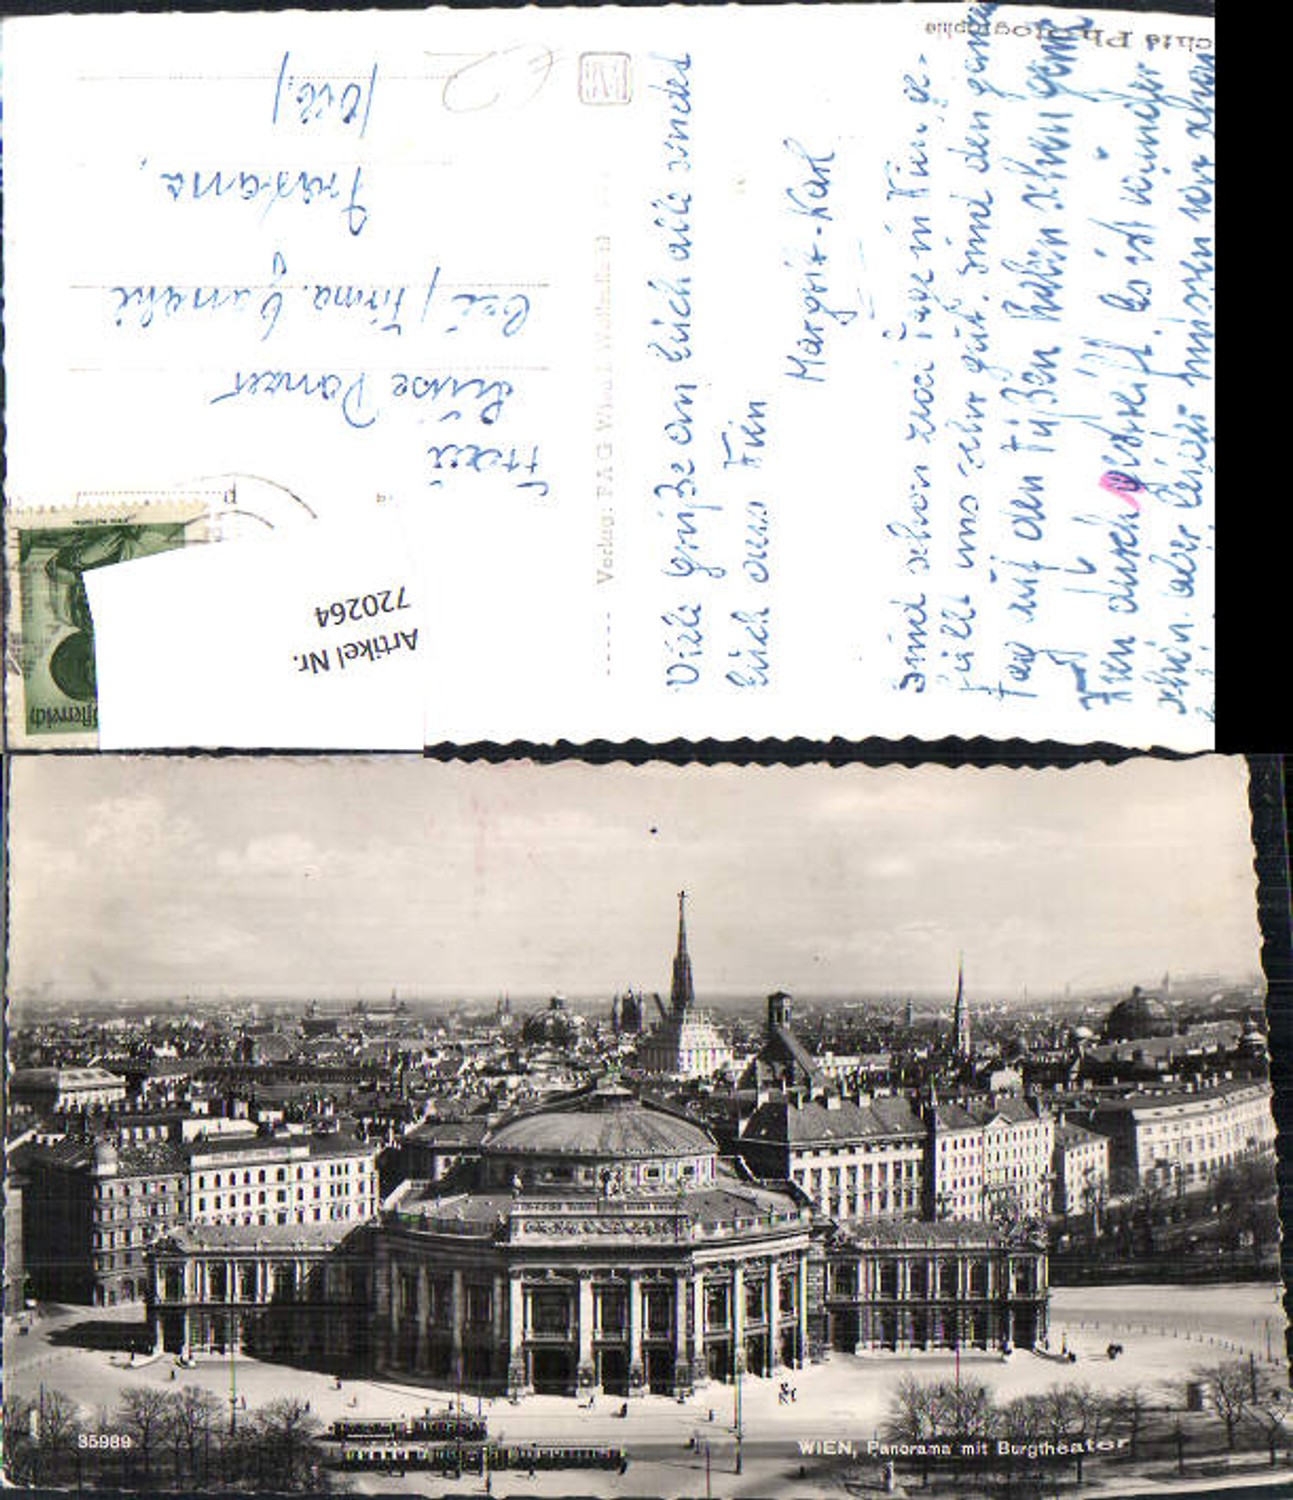 Echte Photographie
Viele Grüße an Euch alle sendet
Euch aus Wien
Margrit - Karl
Sind schon zwei Tage in Wien, ge-
fällt uns sehr gut. Sind den ganzen
Tag auf den Füßen haben schon ganz
Wien durch gestreift. Es ist wunder
schön. aber leider müssen wir schon
Verlag: P A G Wien
Frau
Luise Panzer
bei / Firma. Ganahl
Frastanz,
/ Vlbg. /
€2
Österreich
Artikel Nr.
720264
35989
WIEN, Panorama mit Burgtheater